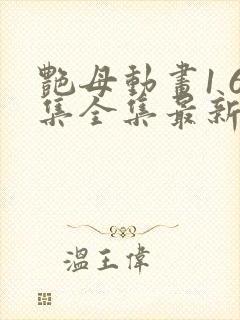 艷母動畫1.6
集全集最新
溫王偉